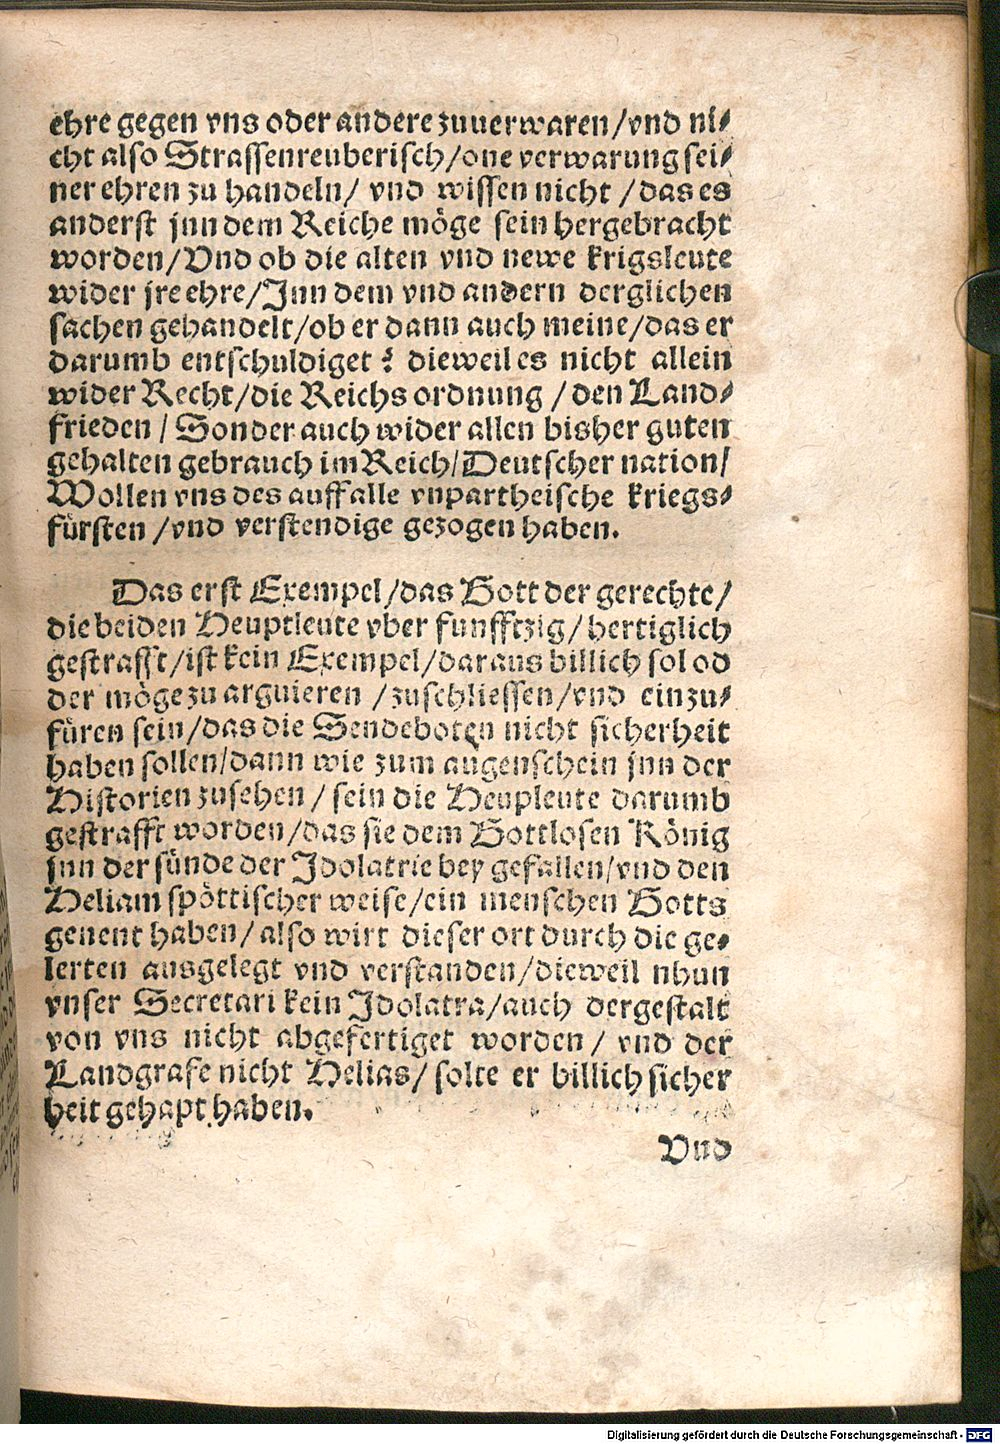 ehre gegen vns oder andere zuuerwaren/vnd ni⸗
cht also Strassenreuberisch/one verwarung sei⸗
ner ehren zu handeln/ vnd wissen nicht /das es
anderst jnn dem Reiche möge sein hergebracht
worden/Vnd ob die alten vnd newe krigsleute
wider jre ehre/Jnn dem vnd andern derglichen
sachen gehandelt/ob er dann auch meine/das er
darumb entschuldiget ? dieweil es nicht allein
wider Recht/die Reichs ordnung /den Land⸗
frieden / Sonder auch wider allen bisher guten
gehalten gebrauch im Reich/Deutscher nation/
Wollen vns des auff alle vnpartheische kriegs⸗
fürsten /vnd verstendige gezogen haben.
Das erst Exempel/das Gott der gerechte/
die beiden Heuptleute vber funfftzig/hertiglich
gestrafft/ist kein Exempel/daraus billich sol od
der möge zu arguieren /zuschliessen/vnd einzu⸗
füren sein/das die Sendeboten nicht sicherheit
haben sollen/dann wie zum augenschein jnn der
Historien zusehen/ sein die Heupleute darumb
gestrafft worden/das sie dem Gottlosen König
jnn der sünde der Jdolatrie bey gefallen/vnd den
Heliam spöttischer weise/ein menschen Gotts
genent haben/also wirt dieser ort durch die ge⸗
lerten ausgelegt vnd verstanden/dieweil nhun
vnser Secretari kein Jdolatra/auch dergestalt
von vns nicht abgefertiget worden/ vnd der
Landgrafe nicht Helias/ solte er billich sicher
heit gehapt haben.
Vnd
Digitalisierung gefördert durch die Deutsche Forschungsgemeinschaft - DFG